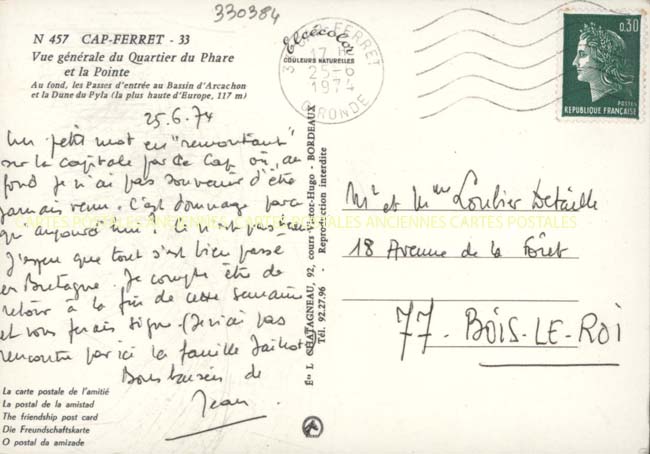 330384
N 457 CAP-FERRET - 33
Vue générale du Quartier du Phare
et la Pointe
Au fond, les Passes d'entrée au Bassin d'Arcachon
et la Dune du Pyla (la plus haute d'Europe, 117 m)
Elcécolor
COULEURS NATURELLES
CAP-FERRET
17 H
25-6
1974
GIRONDE
0,30
POSTES
REPUBLIQUE FRANÇAISE
25.6.74
Un petit mot en "remontant"
sur la capitale par ce Cap où, au
fond je n'ai pas souvenir d'être
jamais venu. C'est dommage parce
qu'aujourd'hui il n'est pas
J'espère que tout s'est bien passé
en Bretagne. Je compte être de
retour à la fin de cette semaine
et vous ferais signe. (Je n'ai pas
rencontré par ici la famille
Bons baisers de
Jean
Mr et Mme Loubier
18 Avenue de la Forêt
77 - BOIS-LE-ROI
CARTES POSTALES ANCIENNES CARTES POSTALES ANCIENNES CARTES POSTALES
Éon L. CHATAGNEAU, 92, cours Victor-Hugo - BORDEAUX
Tél. 92.27.96 - Reproduction interdite
La carte postale de l'amitié
La postal de la amistad
The friendship post card
Die Freundschaftskarte
O postal da amizade